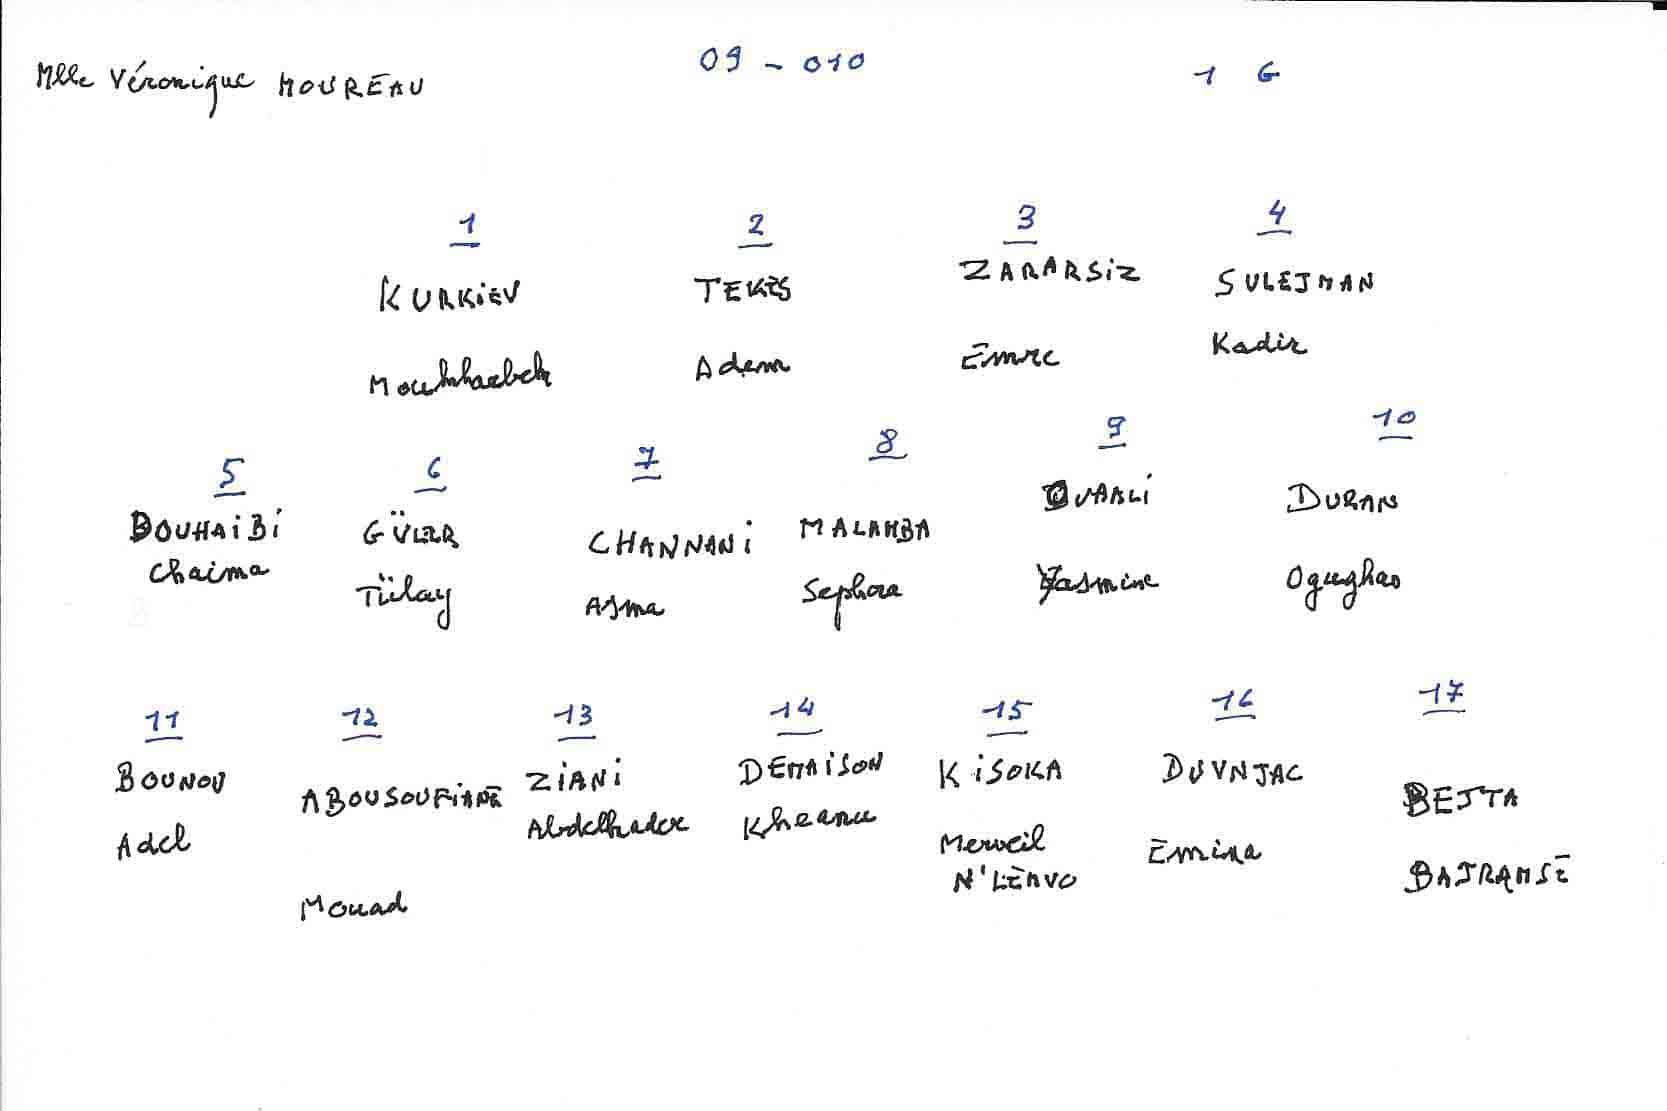 Mlle Véronique MOUREAU 09 - 010 1 G
1 2 3 4
KURKIEV TEKES ZARARSIZ SULEJMAN
Adem Emre Kadir
5 6 7 8 9 10
BOUHAIBI GÜLER CHANNANI MALAMBA OUAALI DURAN
Chaima Tülay Asma Sephora Yasmine Ogughao
11 12 13 14 15 16 17
BOUNOU ABOUSOUFIANE ZIANI DEMAISON KISOKA DUVNJAC BEJTA
Adel Mouad Abdelkader Kheanu Merveil Emina BAJRAMSE
N'LEAVO